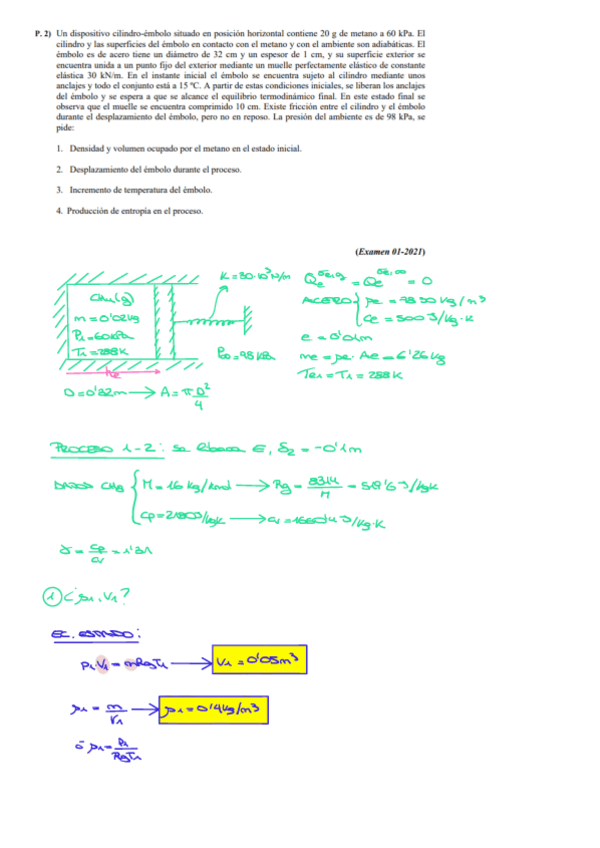 P. 2) Un dispositivo cilindro-émbolo situado en posición horizontal contiene 20 g de metano a 60 kPa. El
cilindro y las superficies del émbolo en contacto con el metano y con el ambiente son adiabáticas. El
émbolo es de acero tiene un diámetro de 32 cm y un espesor de 1 cm, y su superficie exterior se
encuentra unida a un punto fijo del exterior mediante un muelle perfectamente elástico de constante
elástica 30 kN/m. En el instante inicial el émbolo se encuentra sujeto al cilindro mediante unos
anclajes y todo el conjunto está a 15 ºC. A partir de estas condiciones iniciales, se liberan los anclajes
del émbolo y se espera a que se alcance el equilibrio termodinámico final. En este estado final se
observa que el muelle se encuentra comprimido 10 cm. Existe fricción entre el cilindro y el émbolo
durante el desplazamiento del émbolo, pero no en reposo. La presión del ambiente es de 98 kPa, se
pide:
1. Densidad y volumen ocupado por el metano en el estado inicial.
2. Desplazamiento del émbolo durante el proceso.
3. Incremento de temperatura del émbolo.
4. Producción de entropía en el proceso.
(Examen 01-2021)
K=30·10³N/m
CH₄(g)
m=0'02kg
P₁=60kPa
T₁=288K
P∞=98kPa
ACERO { ρe=7830kg/m³
Ce=500J/kg·K
e=0'01m
me=ρe·Ae=6'26kg
Te₁=T₁=288K
D=0'32m → A=πD²/4
PROCESO 1-2: se libera E, δ₂=-0'1m
DATOS CH₄ { M=16kg/kmol → Rg=8314/M=519'6J/kgK
γ=cp/cv=1'31
① ¿ρ₁,V₁?
EC. ESTADO:
P₁V₁=mRgT₁ → V₁=0'05m³
ρ₁=m/V₁ → ρ₁=0'4kg/m³
ó ρ₁=P₁/RgT₁